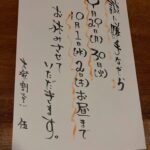 誠に勝手ながら
9月29日(月)30(火)
10月1日(水)2(木)お昼まで
お休みさせて
いただきます。